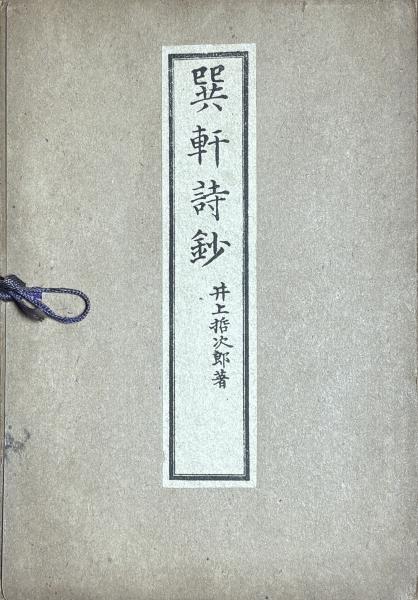 巽軒詩鈔
井上哲次郎著